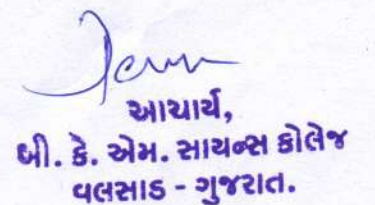 આચાર્ય,
બી. કે. એમ. સાયન્સ કોલેજ
વલસાડ - ગુજરાત.